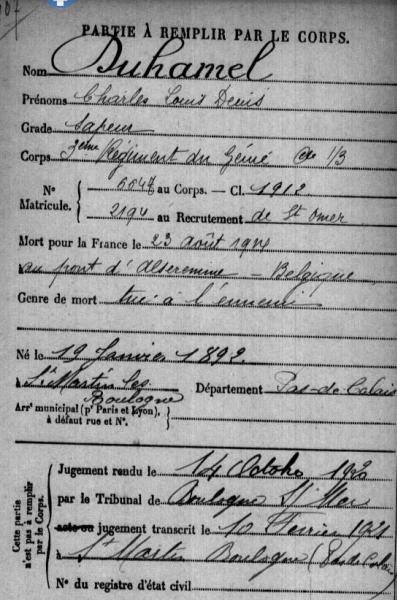 PARTIE À REMPLIR PAR LE CORPS.
Nom Duhamel
Prénoms Charles Louis Denis
Grade Sapeur
Corps 3ème Régiment du Génie Cie 1/3
N° Matricule. { 5547 au Corps. — Cl. 1912
2194 au Recrutement de St Omer
Mort pour la France le 23 août 1914
au pont d' — Belgique
Genre de mort tué à l'ennemi
Né le 19 Janvier 1892
à St Martin les Boulogne Département Pas-de-Calais
Arrt municipal (pr Paris et Lyon), à défaut rue et N°. }
Cette partie n'est pas à remplir par le Corps.
Jugement rendu le 14 Octobre 1920
par le Tribunal de Boulogne s/ Mer
acte ou jugement transcrit le 10 Février 1921
à St Martin Boulogne (Pas de Calais
N° du registre d'état civil